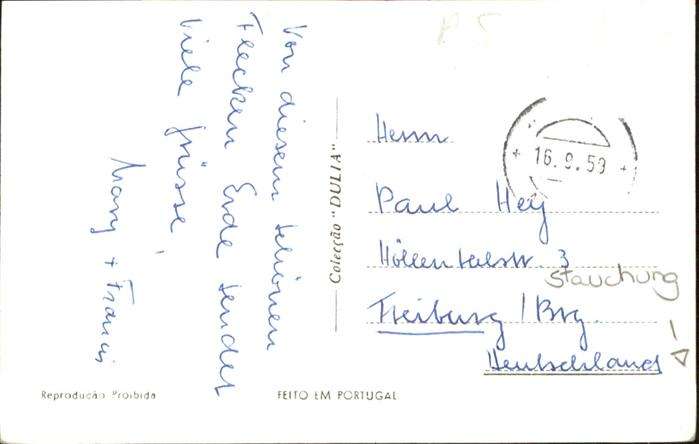 Von diesem schönen
Flecken Erde sendet
Viele Grüsse
Mary + Francis
Colecção "DULIA"
Herrn
Paul Hey
Höllentalstr. 3
Stauchung
Freiburg / Brg.
Deutschland
16.9.59
Reprodução Proibida
FEITO EM PORTUGAL